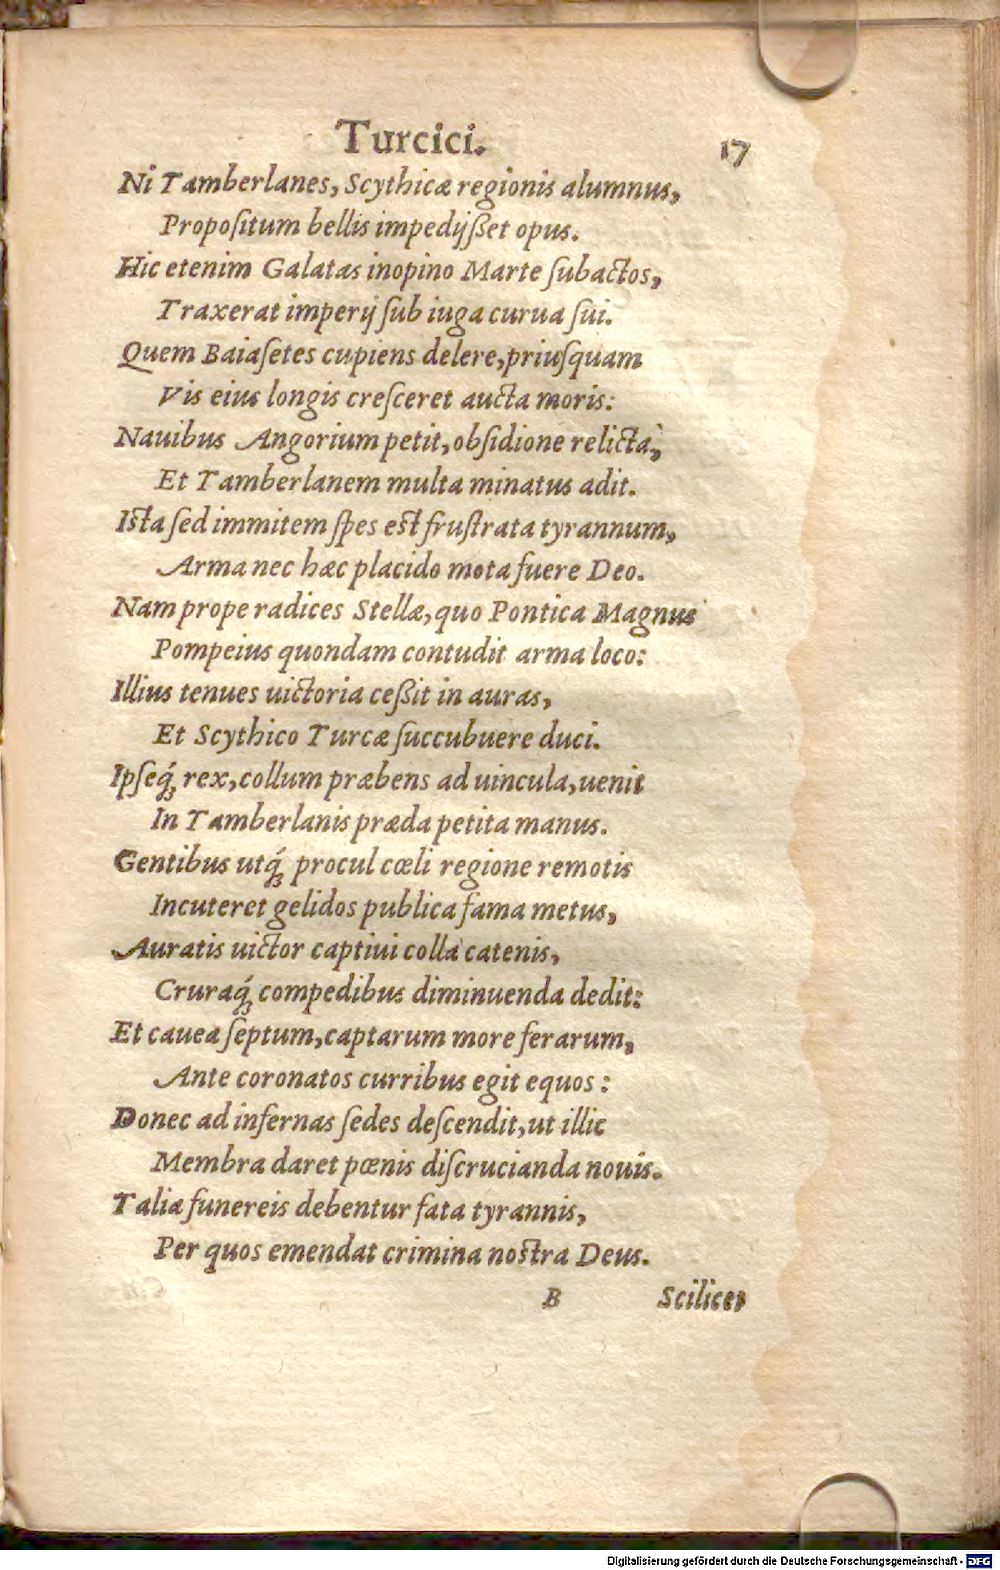 Turcici. 17
Ni Tamberlanes, Scythicæ regionis alumnus,
Propoſitum bellis impedijßet opus.
Hic etenim Galatas inopino Marte ſubactos,
Traxerat imperij ſub iuga curua ſui.
Quem Baiaſetes cupiens delere, priuſquam
Vis eius longis creſceret aucta moris:
Nauibus Angorium petit, obſidione relicta,
Et Tamberlanem multa minatus adit.
Iſta ſed immitem ſpes eſt fruſtrata tyrannum,
Arma nec hæc placido mota fuere Deo.
Nam prope radices Stellæ, quo Pontica Magnus
Pompeius quondam contudit arma loco:
Illius tenues uictoria ceßit in auras,
Et Scythico Turcæ ſuccubuere duci.
Ipſeq́; rex, collum præbens ad uincula, uenit
In Tamberlanis præda petita manus.
Gentibus utq́; procul cœli regione remotis
Incuteret gelidos publica fama metus,
Auratis uictor captiui colla catenis,
Cruraq́; compedibus diminuenda dedit:
Et cauea ſeptum, captarum more ferarum,
Ante coronatos curribus egit equos:
Donec ad infernas ſedes deſcendit, ut illic
Membra daret pœnis diſcrucianda nouis.
Talia funereis debentur fata tyrannis,
Per quos emendat crimina noſtra Deus.
B Scilicet
Digitalisierung gefördert durch die Deutsche Forschungsgemeinschaft - DFG